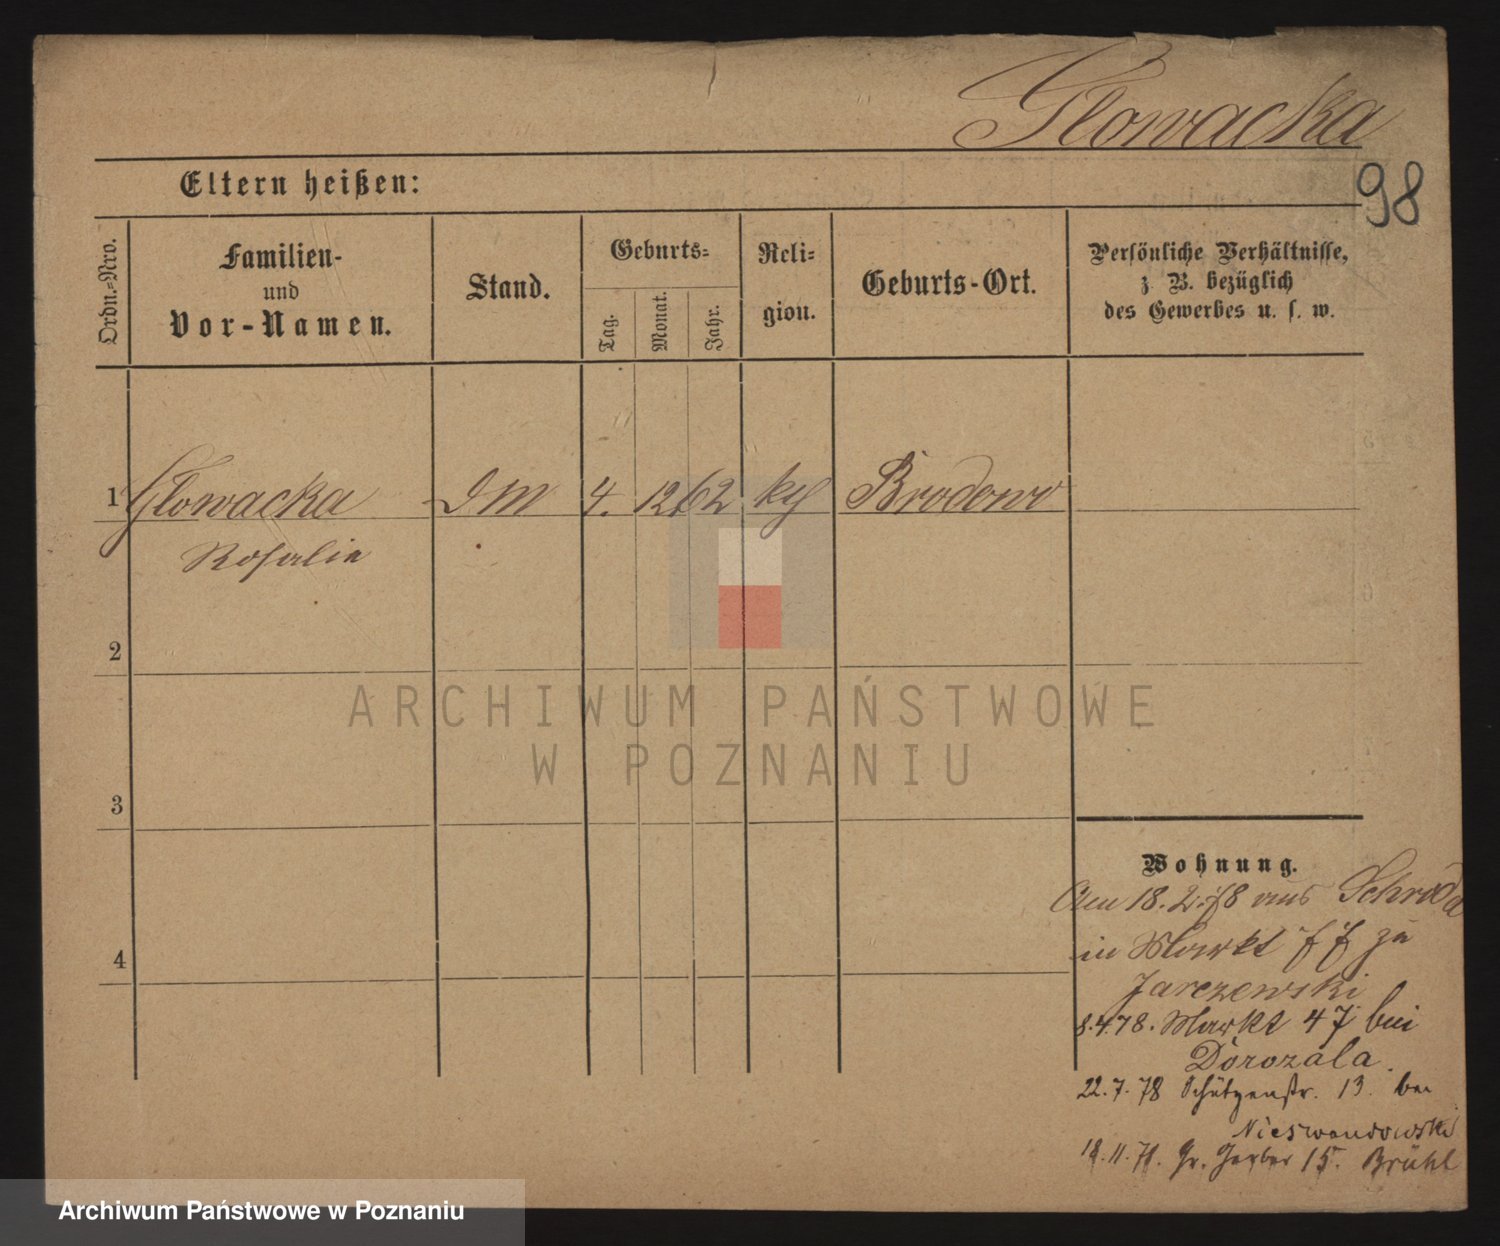 Głowacka
98
Eltern heißen:
Ordn.-Nro.
Familien-
und
Vor-Namen.
Stand.
Geburts-
Tag.
Monat.
Jahr.
Reli-
gion.
Geburts-Ort.
Persönliche Verhältnisse,
z. B. bezüglich
des Gewerbes u. s. w.
1 Głowacka DM 4. 12. 62 kth Brodowo
Rosalie
2
3
4
ARCHIWUM PAŃSTWOWE
W POZNANIU
Wohnung.
18. 2. 78 aus Schroda
in Markt 77 zu
Jarczewski
8.4.78. Markt 47 bei
Dorozala.
22.7.78 Schützenstr. 13. bei
Nieswandowski
18.11.78. Gr. Gerber 15. Brühl
Archiwum Państwowe w Poznaniu